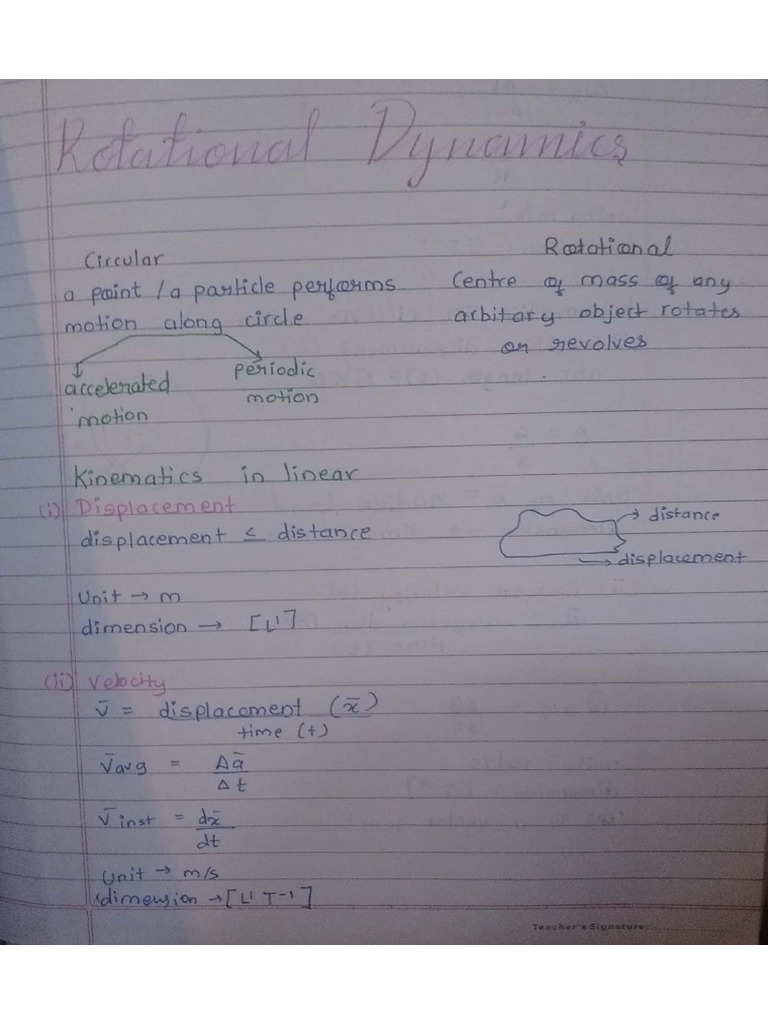 Rotational Dynamics
Circular
a point / a particle performs
motion along circle
accelerated
motion
periodic
motion
Rotational
Centre of mass of any
arbitory object rotates
or revolves
Kinematics in linear
(i) Displacement
displacement ≤ distance
distance
displacement
Unit → m
dimension → [L¹]
(ii) Velocity
v̄ = displacement (x̄)
time (t)
v̄avg = Δā
Δt
v̄inst = dx̄
dt
Unit → m/s
dimension → [L¹ T⁻¹]
Teacher's Signature: